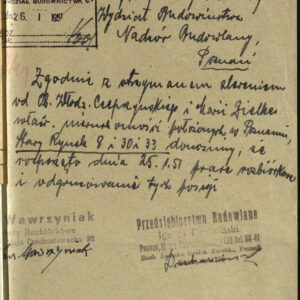 dnia 6. I 1951
Wydział Budownictwa
Nadzór Budowlany
Poznań
Zgodnie z otrzymanem zleceniem
od Ob. Włodz. Czepczyńskiego i Marii Zielke
właśc. nieruchomości położonych w Poznaniu,
Stary Rynek 8 i 30 i 33 donosimy, że
rozpoczęto dnia 25.1.51 prace rozbiórkowe
i odgruzowanie tych posesji
Wawrzyniak
Roboty Rozbiórkowe
Czechosłowacka 92
Wawrzyniak
Przedsiębiorstwo Budowlane
Poznań